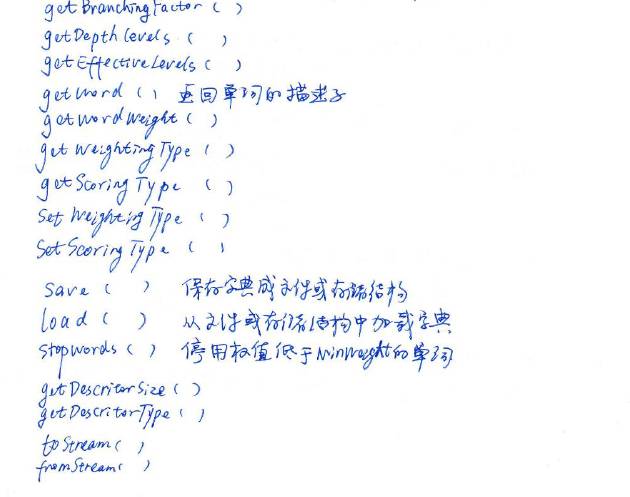 getBranchingFactor ( )
getDepthLevels ( )
getEffectiveLevels ( )
getWord ( ) 返回单词的描述子
getWordWeight ( )
getWeightingType ( )
getScoringType ( )
SetWeightingType ( )
SetScoringType ( )
Save ( ) 保存字典成文件或存储结构
load ( ) 从文件或存储结构中加载字典
stopWords ( ) 停用权值低于minWeight的单词
getDescritorSize ( )
getDescritorType ( )
toStream ( )
fromStream ( )